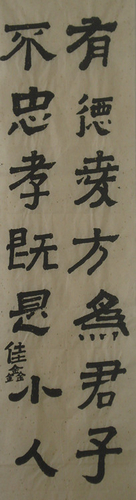 有德爱方為君子
不忠孝既是小人
佳鑫